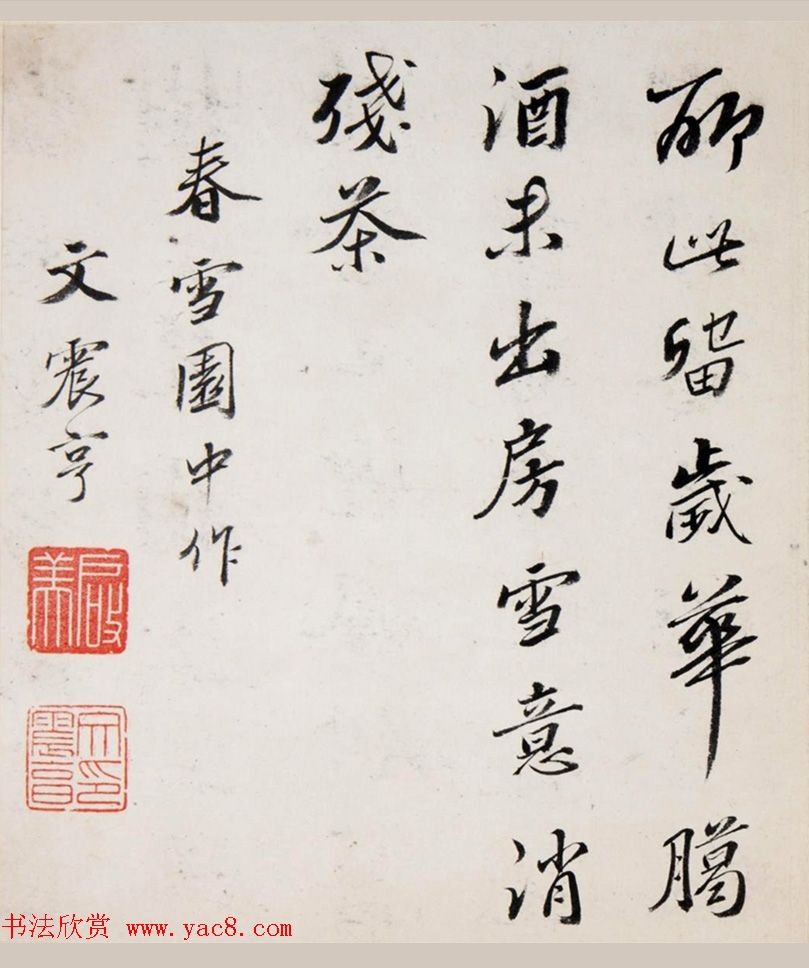 聊此留歲華臈
酒未出房雪意消
殘茶
春雪園中作
文震亨
啟美
文震亨印
书法欣赏 www.yac8.com